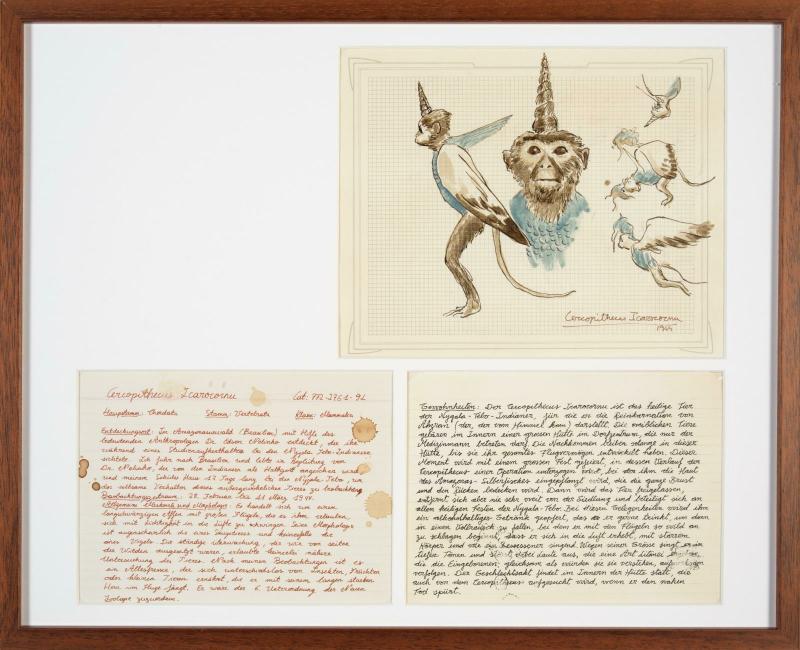 Cercopithecus Icarocornu
1944
Cercopithecus Icarocornu Cat: M-
Hauptstamm: Chordata Stamm: Vertebrata Klasse: Mammalia
Entdeckungsort: Im Amazonasurwald (Brasilien) mit Hilfe des
bedeutenden Anthropologen Dr. entdeckt, der ihn
während eines Studienaufenthaltes bei den Nygala-Tebo-Indianern
sichtete. Ich fuhr nach Brasilien und lebte in Begleitung von
Dr. der von den Indianern als Halbgott angesehen wird
und meinem 17 Tage lang bei den Nygala Tebo, um
das seltsame Verhalten dieses außergewöhnlichen Tieres zu beobachten.
Beobachtungszeitraum: 28. Februar bis März
Allgemeine Merkmale und Morphologie: Es handelt sich um einen
langschwänzigen Affen mit großen Flügeln, die es ihm erlauben,
sich mit Leichtigkeit in die Lüfte zu schwingen. Seine Morphologie
ist augenscheinlich die eines Säugetieres und keinesfalls die
eines Vogels. Die ständige Überwachung, der wir von seiten
der Wilden ausgesetzt waren, erlaubte keinerlei nähere
Untersuchung des Tieres. Nach meinen Beobachtungen ist es
ein Allesfresser, der sich unterschiedslos von Insekten, Früchten
oder kleinen Tieren ernährt, die er mit seinem langen starken
Horn im Fluge fängt. Er wäre der 6. Unterordnung der Neuen
Zoologie zuzuordnen.
Gewohnheiten: Der Cercopithecus Icarocornu ist das heilige Tier
der Nygala-Tebo-Indianer, für die er die Reinkarnation von
(der, der vom Himmel kam) darstellt. Die weiblichen Tiere
gebären im Innern einer grossen Hütte im Dorfzentrum, die nur der
Medizinmann betreten darf. Die Nachkommen leben solange in dieser
Hütte, bis sie ihr gesamtes Flugvermögen entwickelt haben. Dieser
Moment wird mit einem grossen Fest gefeiert, in dessen Verlauf der
Cercopithecus einer Operation unterzogen wird, bei der ihm die Haut
des Amazonas-Silberfisches eingepflanzt wird, die die ganze Brust
und den Rücken bedecken wird. Dann wird das Tier freigelassen,
entfernt sich aber nie sehr weit von der Siedlung und beteiligt sich an
allen heiligen Festen der Nygala-Tebo. Bei diesen Gelegenheiten wird ihm
ein alkoholhaltiges Getränk geopfert, das er gerne trinkt, um dann
in einen Vollrausch zu fallen, bei dem er mit den Flügeln so wild an
zu schlagen beginnt, dass er sich in die Luft erhebt, mit starrem
Körper und wie ein Besessener singend. Wegen seiner Grösse singt er in
tiefen Tönen und stösst dabei Laute aus, die eine Art Litanei
die die Eingeborenen, gleichsam als würden sie sie verstehen,
verfolgen. Der Geschlechtsakt findet im Innern der Hütte statt, die
auch von dem Cercopithecus aufgesucht wird, wenn er den nahen
Tod spürt.